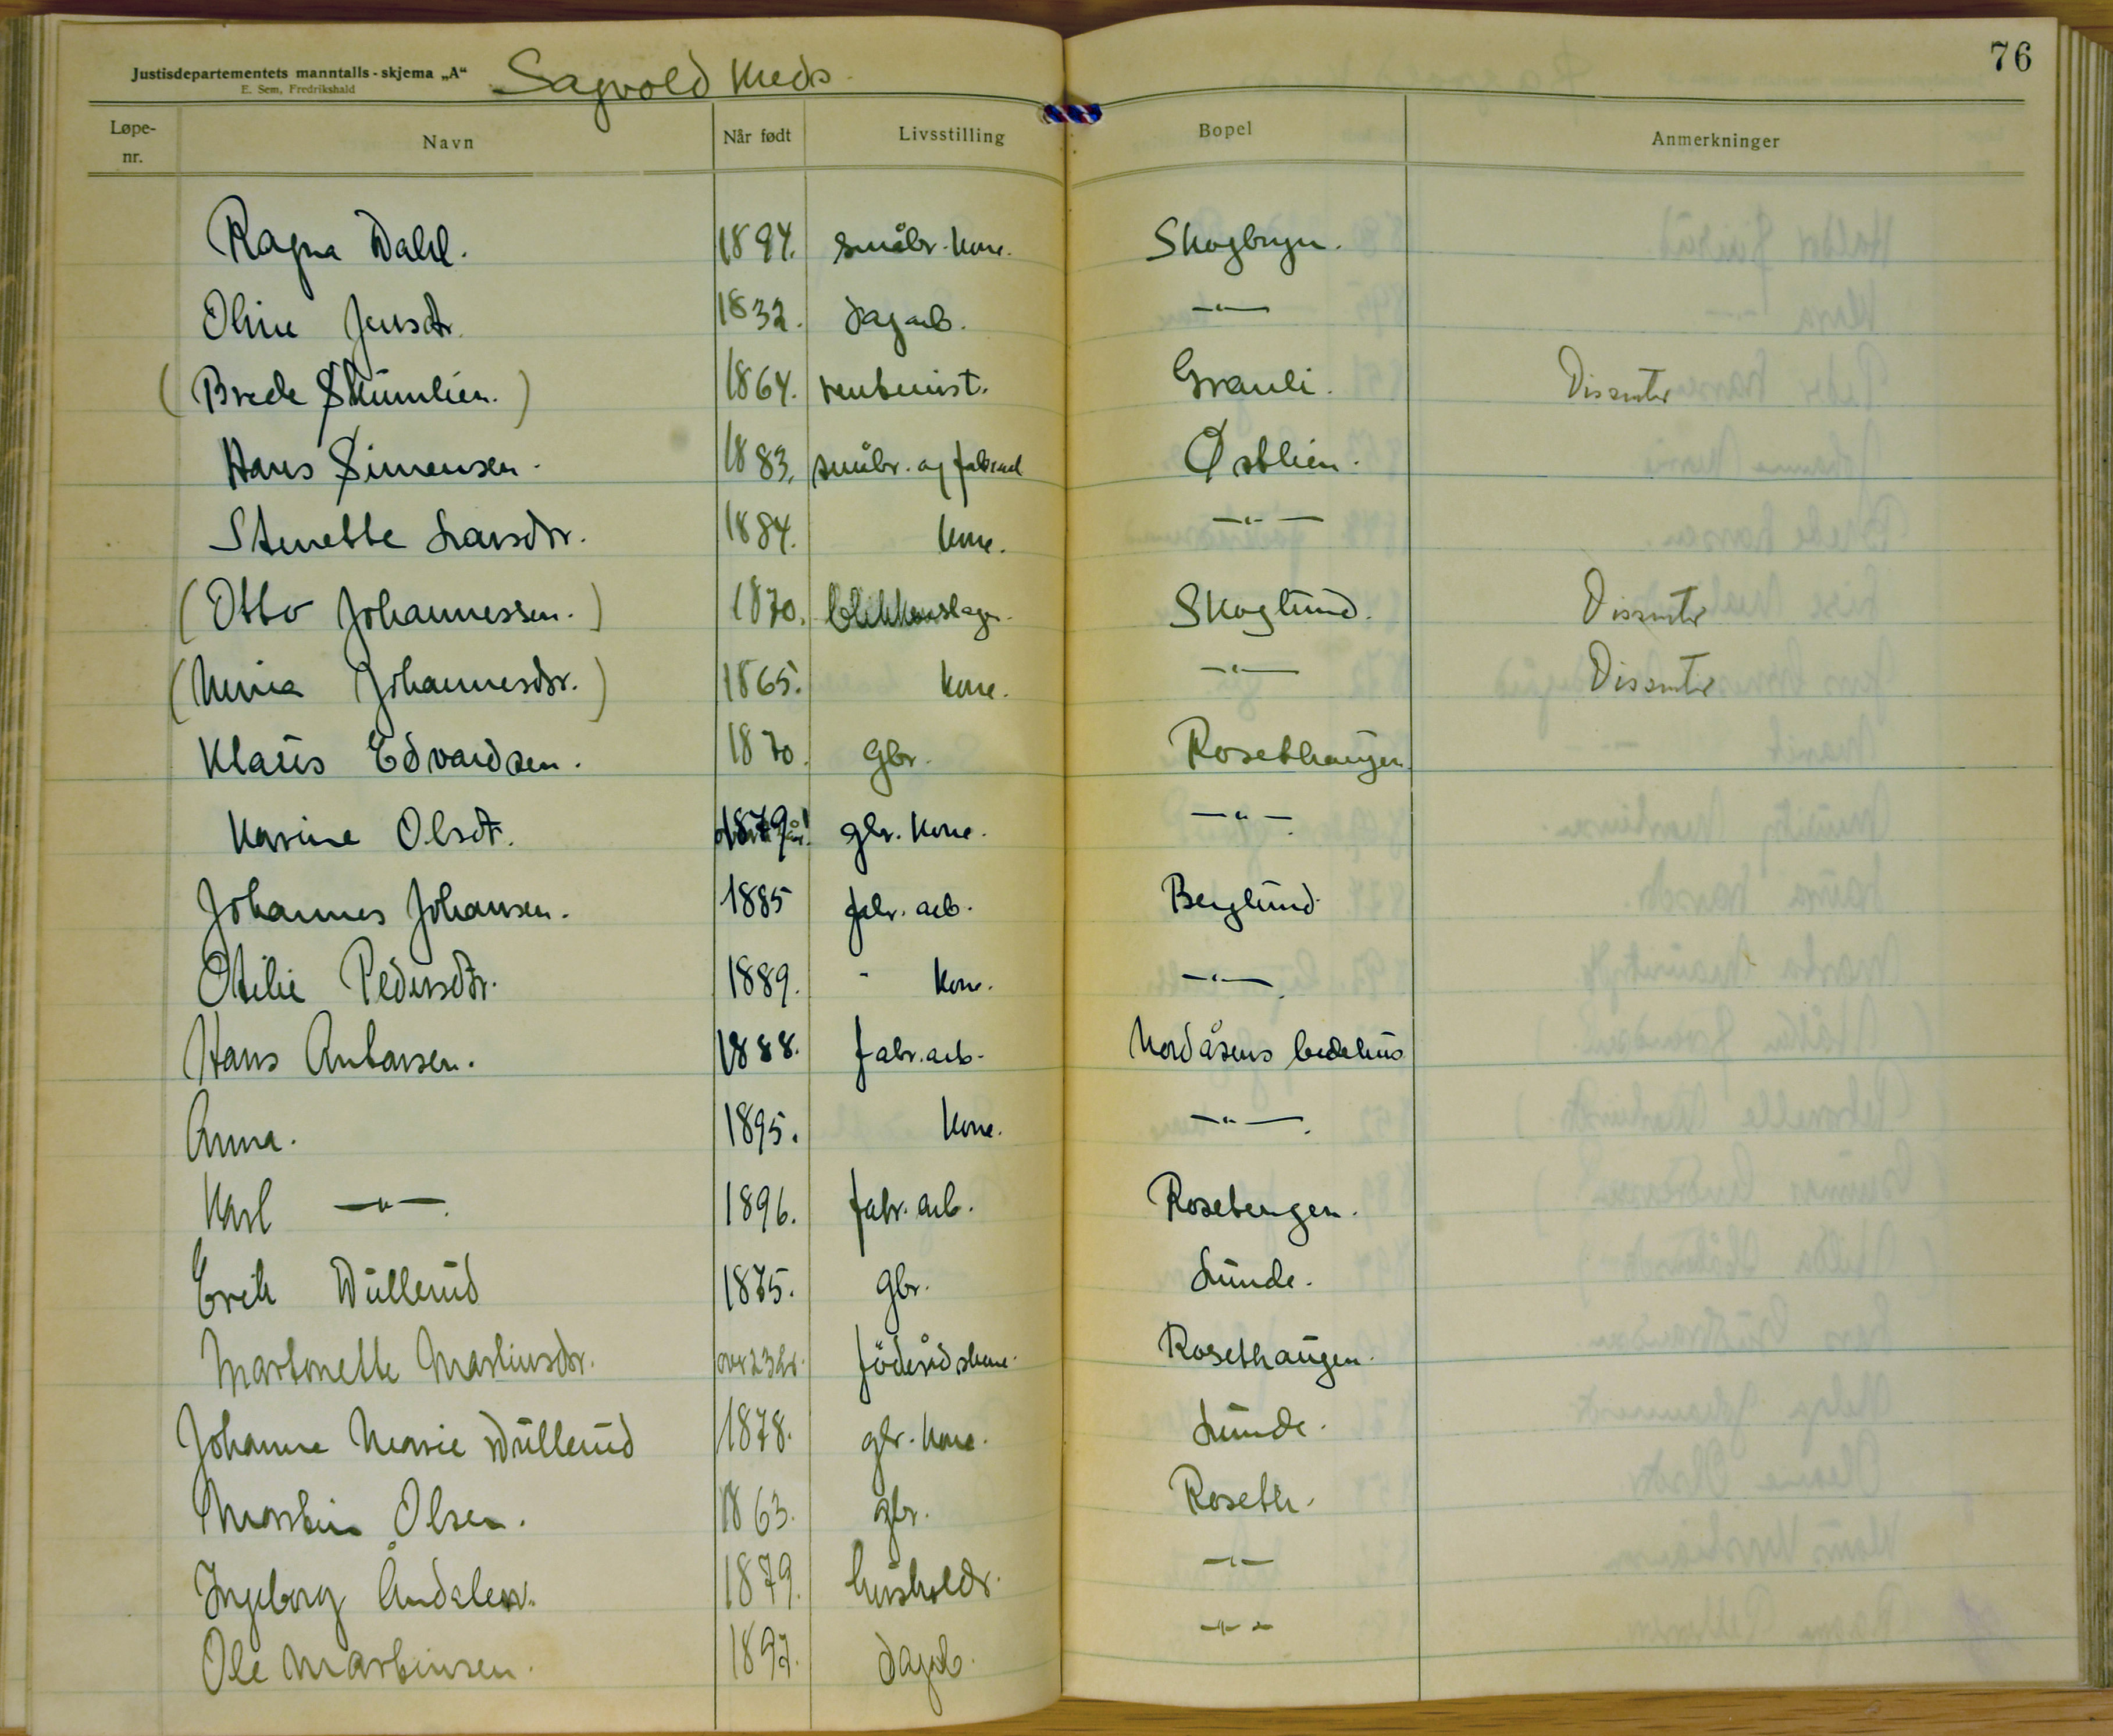 76
Justisdepartementets manntalls-skjema „A“
E. Sem, Fredrikshald
Sagvold Kreds.
Løpe-nr. Navn Når født Livsstilling Bopel Anmerkninger
Ragna Dahl. 1894. småbr. kone. Skogbryn.
Oline Jensdtr. 1832. dagarb. —"—
(Brede Skumlien.) 1864. Granli. Dissenter
Hans Simensen. 1883. småbr. og Østlien.
Stenette Larsdtr. 1884. kone. —"—
(Otto Johannessen.) 1870. blikkenslager. Skoglund. Dissenter
(Mina Johannesdtr.) 1865. kone. —"— Dissenter
Klaus Edvardsen. 1870. Gbr. Rosethaugen
Karine Olsdt. 1879 gbr. kone. —"—.
Johannes Johansen. 1885 fabr. arb. Berglund
Otilie Pedersdtr. 1889. " kone. —"—.
Hans Antonsen. 1888. fabr. arb. Nordåsens bedehus
Anna. 1895. kone. —"—.
Karl —"—. 1896. fabr. arb. Rosetengen.
Erik Dullerud 1875. gbr. Lunde.
Martonette Martinsdtr. over 23 år. föderådskone. Rosethaugen.
Johanne Marie Dullerud 1878. gbr. kone. Lunde.
Martin Olsen. 1863. gbr. Roseth.
Ingeborg 1879. husholdr. —"—
Ole Martinsen. 1897. dagarb. —"—